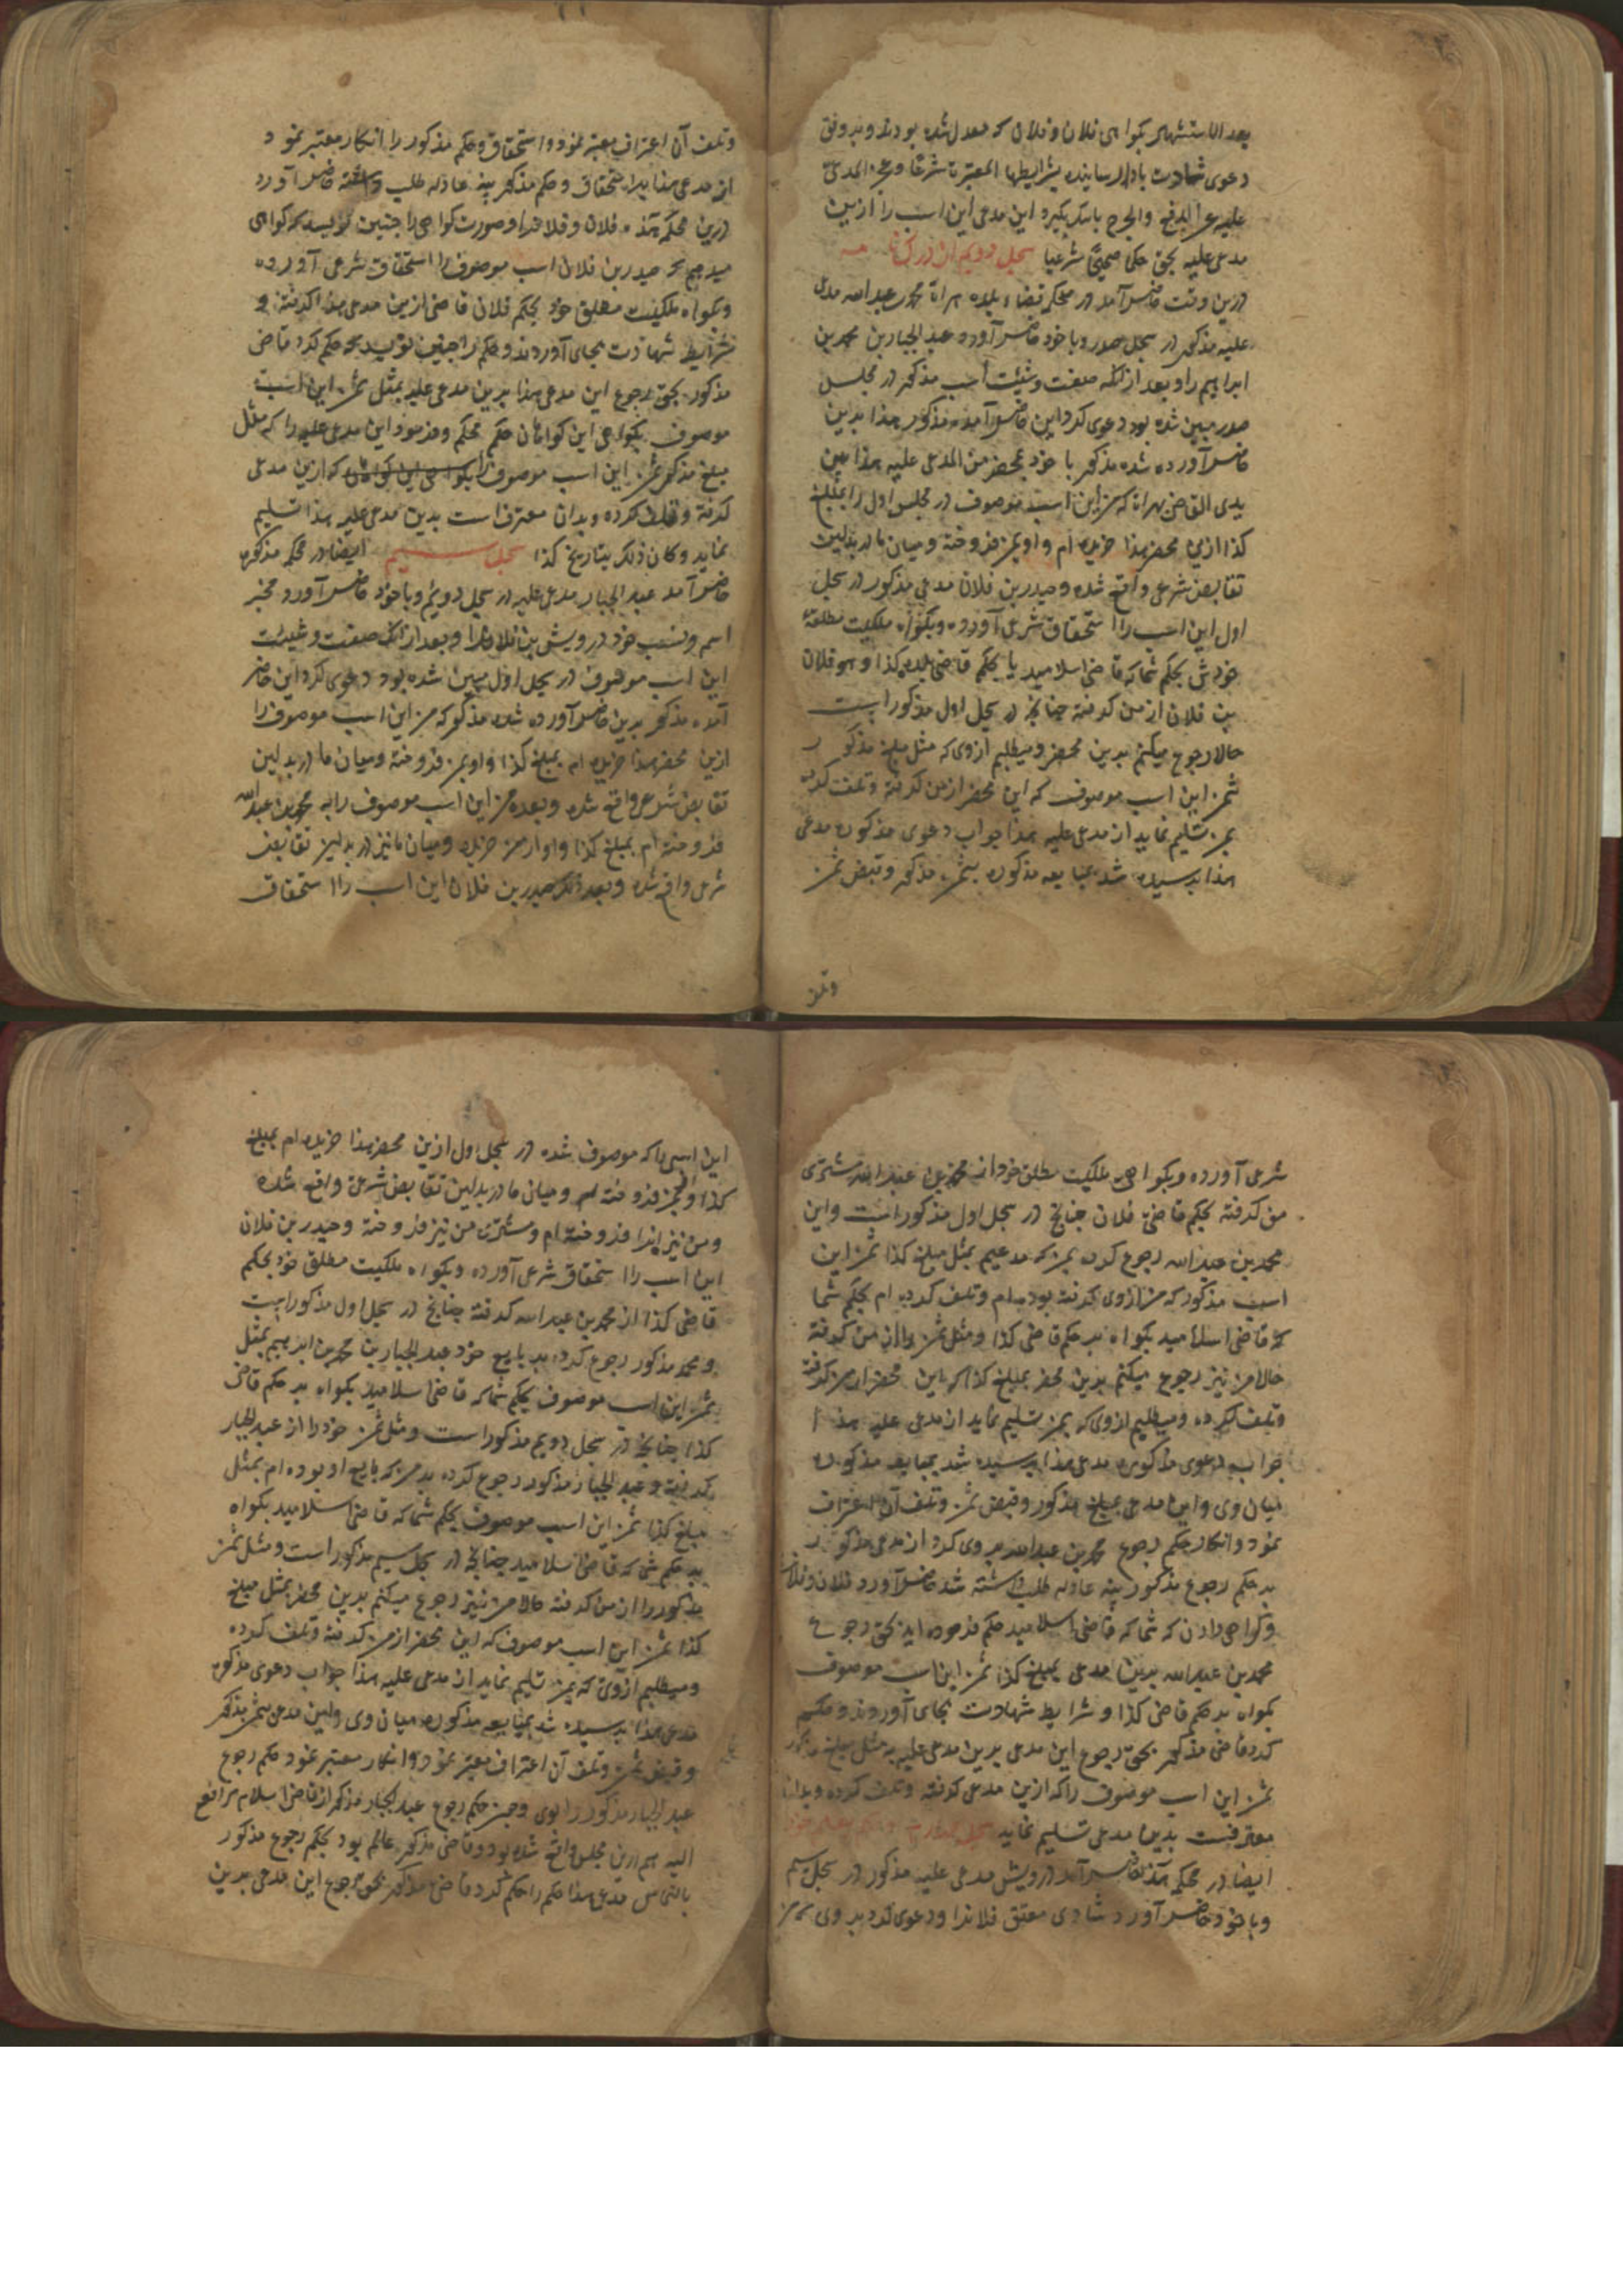 بعد الاستشهاد بگواهی فلان و فلان که معدل شده بودند و بر وفق
دعوی شهادت بادا رسانیده بشرایطها المعتبرة شرعا و عجز المدعی
علیه عن الدفع والجرح باینکه بگیرد این مدعی این اسب را ازین
مدعی علیه بحق حکما صحیحا شرعیا سجل دویم
درین وقت حاضر آمد در محکمه قضاء بلده هراة محمد بن عبدالله مدعی
علیه مذکور در سجل صدر و با خود حاضر آورد عبد الجبار بن محمد بن
ابراهیم را و بعد از آنکه صفت و شیئت اسب مذکور در مجلس
صدر مبین شده بود دعوی کرد این حاضر آمده مذکور هذا بدین
حاضر آورده شده مذکور با خود بمحضر من المدعی علیه هذا بین
یدی القاضی بهراة که من این اسب موصوف در مجلس اول را بمبلغ
کذا ازین محضر هذا خریده ام و او بمن فروخته و میان ما در بدلین
تقابض شرعی واقع شده و حیدر بن فلان مدعی مذکور در سجل
اول این اسب را استحقاق شرعی آورده و بگواه ملکیت مطلقه
خودش بحکم شما که قاضی اسلامید یا بحکم قاضی بلده کذا و هو فلان
بن فلان از من گرفته چنانچه در سجل اول مذکور است
حالا رجوع میکنم بدین محضر و میطلبم از وی که مثل مبلغ مذکور
ثمن این اسب موصوف که این محضر از من گرفته و تلف کرده
بمن تسلیم نماید از مدعی علیه هذا جواب دعوی مذکوره مدعی
هذا پرسیده شد بمبایعه مذکوره بثمن مذکور و قبض ثمن
وتلف
وتلف آن اعتراف معتبر نمود و استحقاق و حکم مذکور را انکار معتبر نمود
از مدعی هذا بر استحقاق و حکم مذکور بینه عادله طلب داشته حاضر آورد
درین محکمه هذه فلان و فلانرا و صورت گواهی را چنین نویسد که گواهی
میدهم که حیدر بن فلان اسب موصوف را استحقاق شرعی آورده
و بگواه ملکیت مطلق خود بحکم فلان قاضی ازین مدعی هذا گرفته و
شرایط شهادت بجای آوردند و حکم را چنین نویسد که حکم کرد قاضی
مذکور بحق رجوع این مدعی هذا برین مدعی علیه بمثل ثمن این اسب
موصوف بگواهی این گواهان حکم محکم و فرمود این مدعی علیه را که مثل
مبلغ مذکور ثمن این اسب موصوف را بگواهی این گواهان که ازین مدعی
گرفته و تلف کرده و بدان معترف است بدین مدعی علیه هذا تسلیم
نماید و کان ذلک بتاریخ کذا سجل سیم ایضا در محکمه مذکوره
حاضر آمد عبد الجبار مدعی علیه در سجل دویم و با خود حاضر آورد مخبر
اسم و نسب خود درویش بن فلان را و بعد از آنکه صفت و شیئت
این اسب موصوف در سجل اول مبین شده بود دعوی کرد این حاضر
آمده مذکور بدین حاضر آورده شده مذکور که من این اسب موصوف را
ازین محضر هذا خریده ام بمبلغ کذا و او بمن فروخته و میان ما در بدلین
تقابض شرعی واقع شده و بعده من این اسب موصوف را به محمد بن عبدالله
فروخته ام بمبلغ کذا و او از من خریده و میان ما نیز در بدلین تقابض
شرعی واقع شده و بعد ذلک حیدر بن فلان این اسب را استحقاق
شرعی آورده و بگواهی ملکیت مطلق خود از محمد بن عبدالله مشتری
من گرفته بحکم قاضی فلان چنانچه در سجل اول مذکور است و این
محمد بن عبدالله رجوع کرده بمن که مدعیم بمثل مبلغ کذا ثمن این
اسب مذکور که من از وی گرفته بوده ام و تلف کرده ام بحکم شما
که قاضی اسلامید بگواه بر حکم قاضی کذا و مثل ثمن را از من گرفته
حالا من نیز رجوع میکنم بدین محضر بمبلغ کذا که این محضر از من گرفته
و تلف کرده و میطلبم از وی که بمن تسلیم نماید از مدعی علیه هذا
جواب دعوی مذکوره مدعی هذا پرسیده شد بمبایعه مذکوره
میان وی و این مدعی بمبلغ مذکور و قبض ثمن و تلف آن اعتراف
نمود و انکار حکم رجوع محمد بن عبدالله بر وی کرد از مدعی مذکور
بر حکم رجوع مذکور بینه عادله طلب داشته شد حاضر آورد فلان و فلان
و گواهی دادند که شما که قاضی اسلامید حکم فرموده اید بحق رجوع
محمد بن عبدالله بدین مدعی بمبلغ کذا ثمن این اسب موصوف
بگواه بر حکم قاضی کذا و شرایط شهادت بجای آوردند و حکم
کرد قاضی مذکور بحق رجوع این مدعی برین مدعی علیه به مثل مبلغ مذکور
ثمن این اسب موصوف را که ازین مدعی گرفته و تلف کرده و بدان
معترفست بدین مدعی تسلیم نماید سجل چهارم
ایضا در محکمه هذه حاضر آمد درویش مدعی علیه مذکور در سجل سیم
و با خود حاضر آورد شادی معتق فلانرا و دعوی کرد بر وی که من
این اسبی را که موصوف شده در سجل اول ازین محضر هذا خریده ام بمبلغ
کذا و بمن فروخته و میان ما در بدلین تقابض شرعی واقع شده
و من نیز اینرا فروخته ام و مشتری من نیز فروخته و حیدر بن فلان
این اسب را استحقاق شرعی آورده و بگواه ملکیت مطلق خود بحکم
قاضی کذا از محمد بن عبدالله گرفته چنانچه در سجل اول مذکور است
و محمد مذکور رجوع کرده بر بایع خود عبد الجبار بن محمد بن ابراهیم بمثل
ثمن این اسب موصوف بحکم شما که قاضی اسلامید بگواه بر حکم قاضی
کذا چنانچه در سجل دویم مذکور است و مثل ثمن خود را از عبد الجبار
گرفته و عبد الجبار مذکور رجوع کرده بر من که بایع او بوده ام بمثل
مبلغ کذا ثمن این اسب موصوف بحکم شما که قاضی اسلامید بگواه
بر حکم شما که قاضی اسلامید چنانچه در سجل سیم مذکور است و مثل ثمن
مذکور را از من گرفته حالا من نیز رجوع میکنم بدین محضر بمثل مبلغ
کذا ثمن این اسب موصوف که این محضر از من گرفته و تلف کرده
و میطلبم از وی که بمن تسلیم نماید از مدعی علیه هذا جواب دعوی مذکوره
مدعی هذا پرسیده شد بمبایعه مذکوره میان وی و این مدعی بثمن مذکور
و قبض ثمن و تلف آن اعتراف معتبر نمود و انکار معتبر نمود حکم رجوع
عبد الجبار مذکور را بوی و چون حکم رجوع عبد الجبار مذکور از قاضی اسلام مرافع
الیه هم درین مجلس واقع شده بود و قاضی مذکور عالم بود بحکم رجوع مذکور
بالتماس مدعی هذا حکم را حکم کرد قاضی مذکور بحق رجوع این مدعی بدین